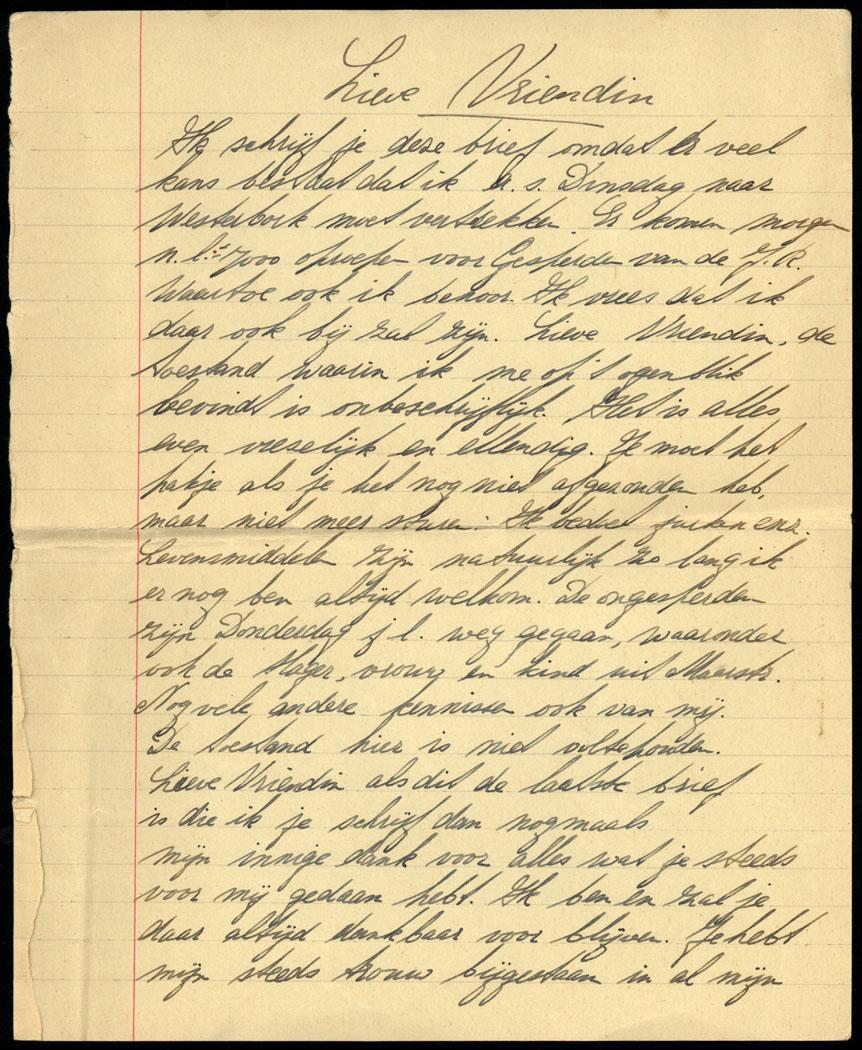 Lieve Vriendin
Ik schrijf je deze brief omdat er veel
kans bestdat dat ik a.s. Dinsdag naar
Westerbork moet vertrekken. Er komen morgen
n.l. 7000 oproepen voor Gesperden van de J.R.
Waartoe ook ik behoor. Ik vrees dat ik
daar ook bij zal zijn. Lieve Vriendin, de
toestand waarin ik me op 't ogenblik
bevindt is onbeschrijflijk. Het is alles
even vreselijk en ellendig. Je moet het
pakje als je het nog niet afgezonden heb,
maar niet meer sturen. Ik bedoel jurken enz.
Levensmiddelen zijn natuurlijk zo lang ik
er nog ben altijd welkom. De ongesperden
zijn Donderdag j l. weg gegaan, waaronder
ook de slager, vrouw en kind uit Maarstr.
Nog vele andere kennissen ook van mij.
De toestand hier is niet uit te houden.
Lieve Vriendin als dit de laatste brief
is die ik je schrijf dan nogmaals
mijn innige dank voor alles wat je steeds
voor mij gedaan hebt. Ik ben en zal je
daar altijd dankbaar voor blijven. Je hebt
mijn steeds trouw bijgestaan in al mijn